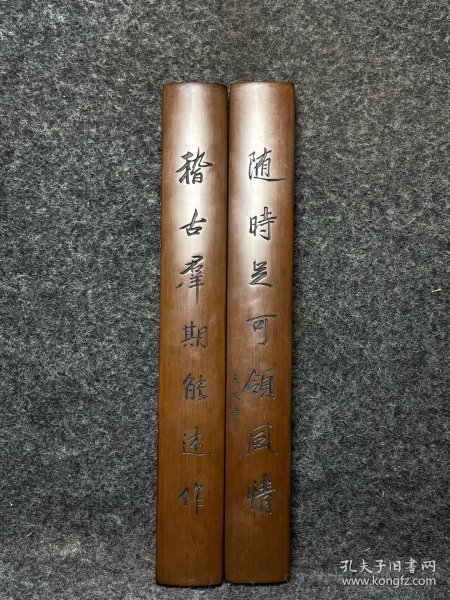 随時足可領風情
稽古羣期能述作
孔夫子旧书网
www.kongfz.com